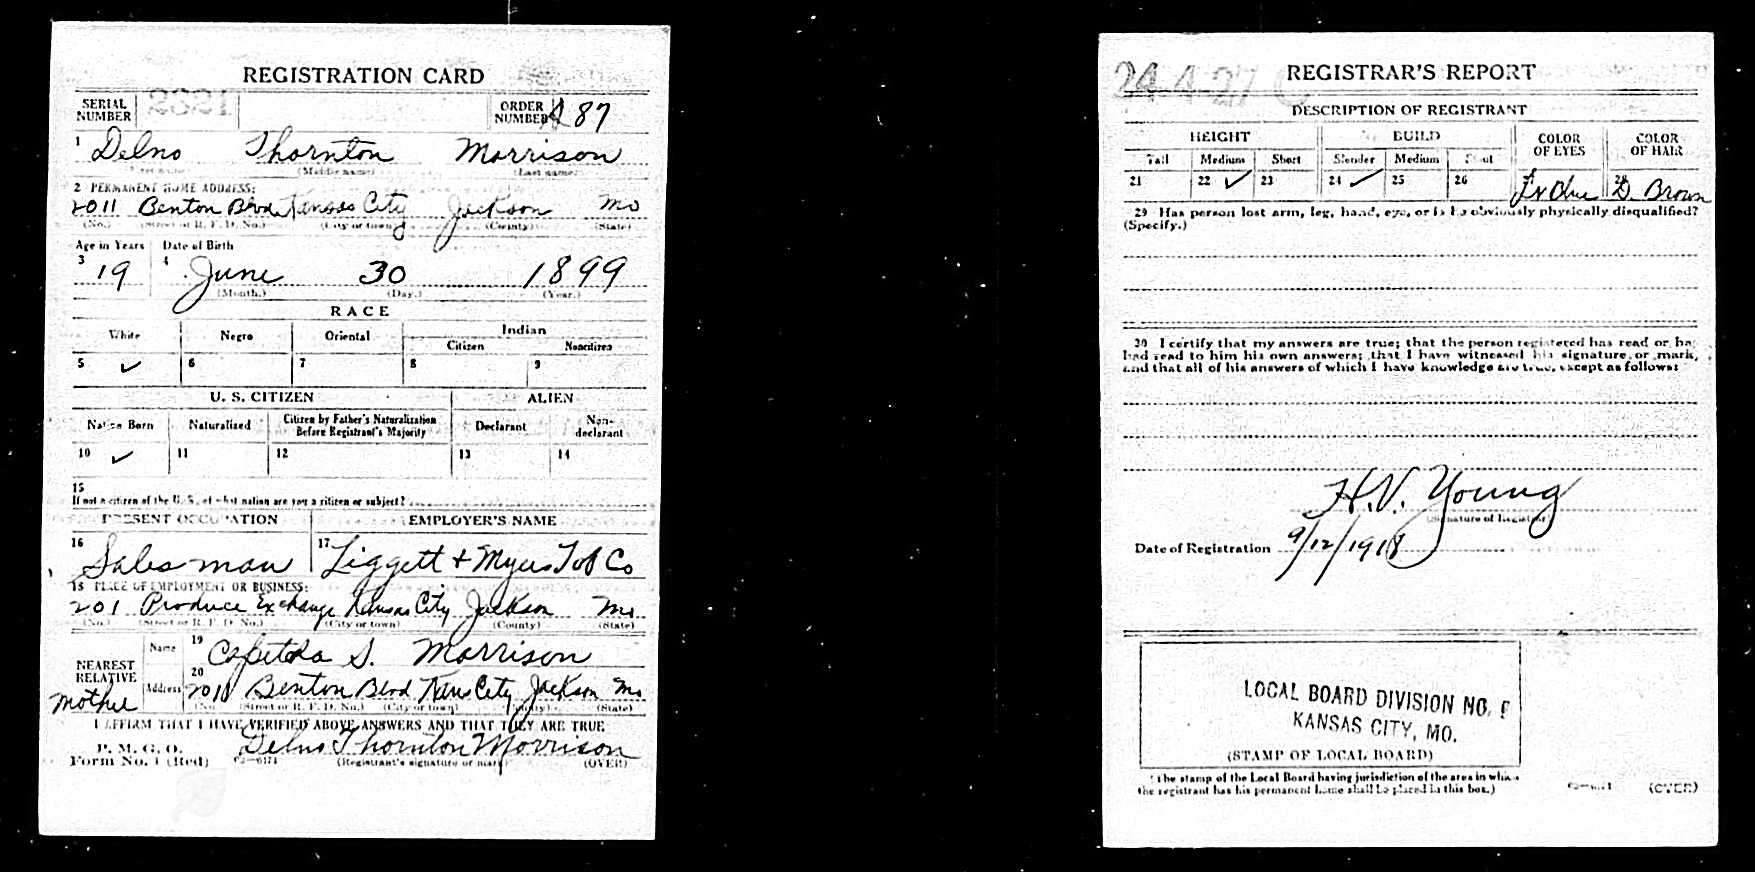 REGISTRATION CARD
SERIAL NUMBER
ORDER NUMBER A 87
1 Delno Thornton Morrison
(Middle name) (Last name)
2 PERMANENT HOME ADDRESS:
2011 Benton Blvd Kansas City Jackson Mo
(No.) (Street or R. F. D. No.) (City or town) (County) (State)
Age in Years Date of Birth
3 19 4 June 30 1899
(Month.) (Day.) (Year.)
RACE
White Negro Oriental Indian
Citizen Noncitizen
5 ✓ 6 7 8 9
U. S. CITIZEN ALIEN
Native Born Naturalized Citizen by Father's Naturalization Before Registrant's Majority Declarant Non-declarant
10 ✓ 11 12 13 14
15
If not a citizen of the U. S., of what nation are you a citizen or subject?
PRESENT OCCUPATION EMPLOYER'S NAME
16 Salesman 17 Liggett + Myers Tob Co
18 PLACE OF EMPLOYMENT OR BUSINESS:
201 Produce Exchange Kansas City Jackson Mo.
(No.) (Street or R. F. D. No.) (City or town) (County) (State)
NEAREST RELATIVE Name 19 Capitola S. Morrison
Mother Address 20 2011 Benton Blvd Kans City Jackson Mo
(No.) (Street or R. F. D. No.) (City or town) (County) (State)
I AFFIRM THAT I HAVE VERIFIED ABOVE ANSWERS AND THAT THEY ARE TRUE
P. M. G. O.
Form No. 1 (Red) Delno Thornton Morrison
(Registrant's signature or mark) (OVER)
24-4-27 C
REGISTRAR'S REPORT
DESCRIPTION OF REGISTRANT
HEIGHT BUILD COLOR OF EYES COLOR OF HAIR
Tall Medium Short Slender Medium Stout
21 22 ✓ 23 24 ✓ 25 26 Lt Blue 28 D. Brown
29 Has person lost arm, leg, hand, eye, or is he obviously physically disqualified?
(Specify.)
30 I certify that my answers are true; that the person registered has read or has
had read to him his own answers; that I have witnessed his signature or mark,
and that all of his answers of which I have knowledge are true, except as follows:
H.V. Young
(Signature of Registrar)
Date of Registration 9/12/1918
LOCAL BOARD DIVISION NO.
KANSAS CITY, MO.
(STAMP OF LOCAL BOARD)
(The stamp of the Local Board having jurisdiction of the area in which
the registrant has his permanent home shall be placed in this box.)
(OVER)